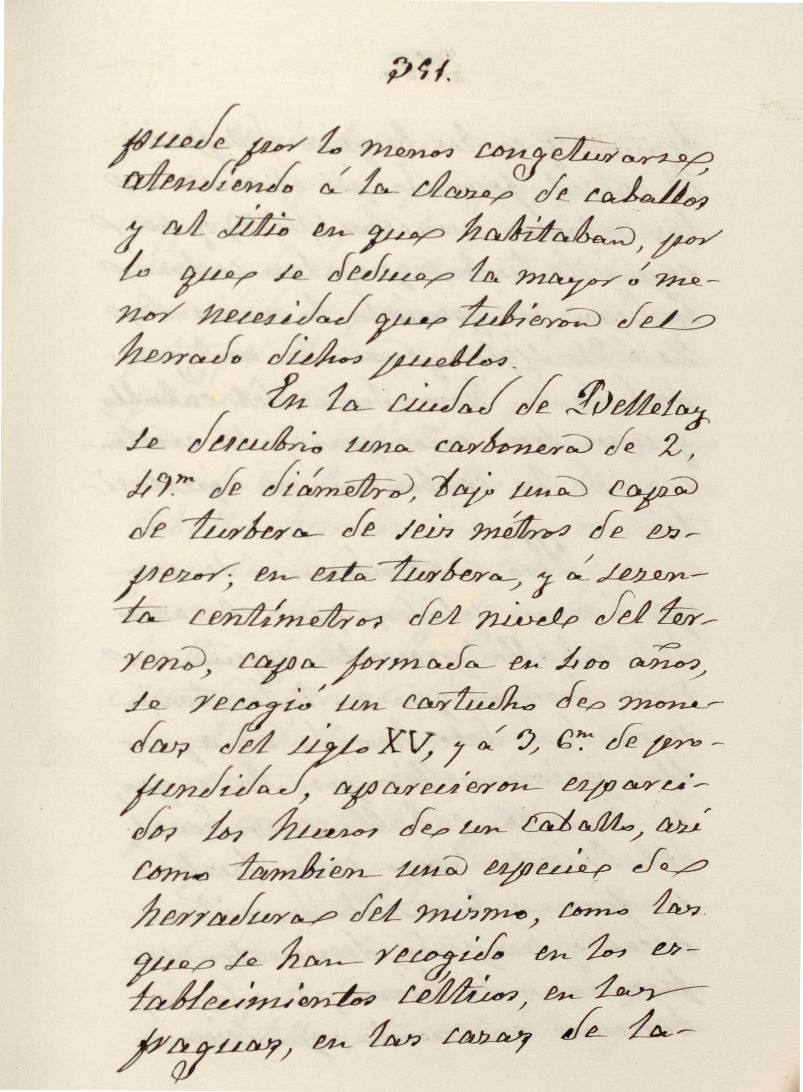 391.
puede por lo menos congeturarse,
atendiendo á la clase de caballos
y al sitio en que habitaban, por
lo que se deduce la mayor ó me-
nor necesidad que tubieron del
herrado dichos pueblos.
En la ciudad de Bellelay
se descubrio una carbonera de 2,
49.m de diámetro, bajo una capa
de turbera de seis métros de es-
pesor; en esta turbera, y á sesen-
ta centímetros del nivel del ter-
reno, capa formada en 400 años,
se recogió un cartucho de mone-
das del siglo XV, y á 3, 6.m de pro-
fundidad, aparecieron esparci-
dos los huesos de un caballo, así
como tambien una especie de
herradura del mismo, como las
que se han recogido en los es-
tablecimientos célticos, en las
fraguas, en las casas de la-